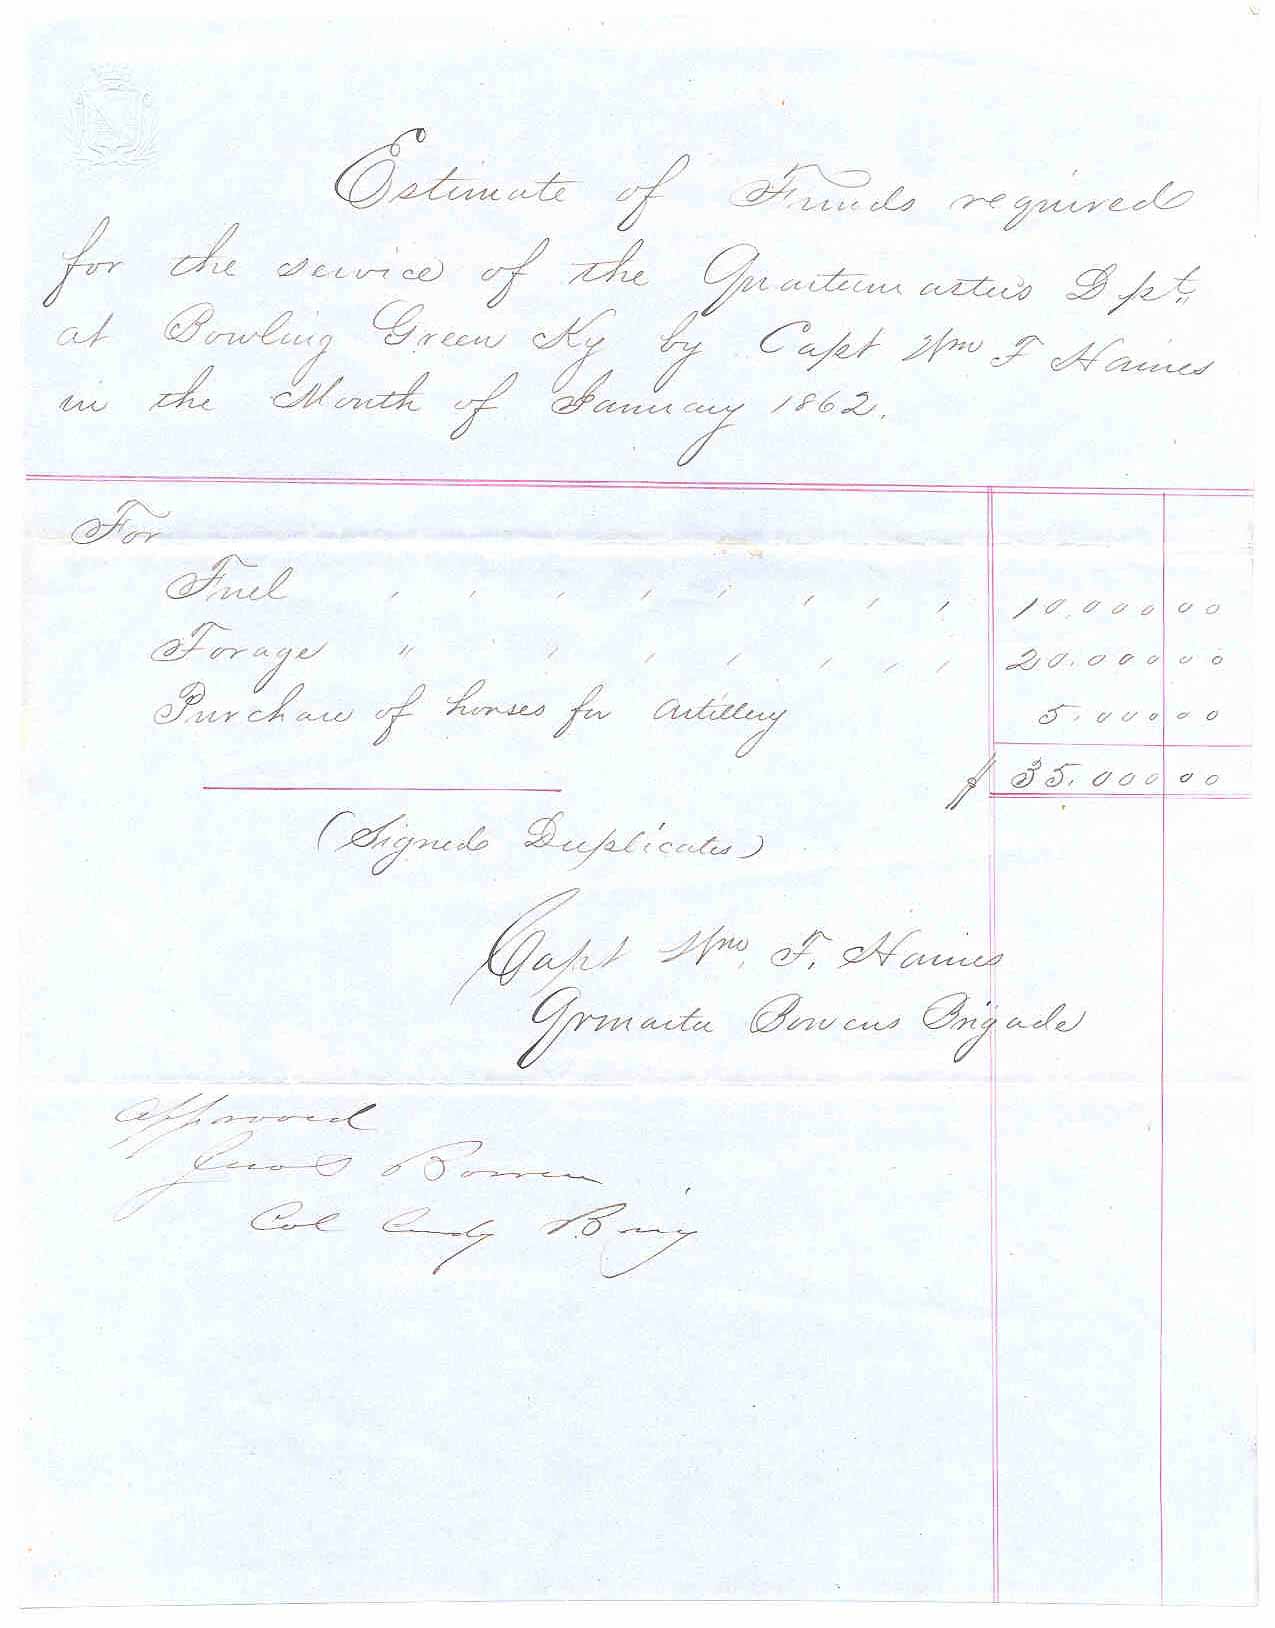 Estimate of Funds required
for the service of the Quartermasters Dpt.
at Bowling Green Ky by Capt Wm F Haines
in the Month of January 1862.
For
Fuel 10.000 00
Forage " 20.000 00
Purchase of horses for Artillery 5.000 00
$ 35.000 00
(Signed Duplicates)
Capt Wm. F. Haines
Qrmaster Bowens Brigade
Approved
Jno S Bowen
Col Comdg Brig